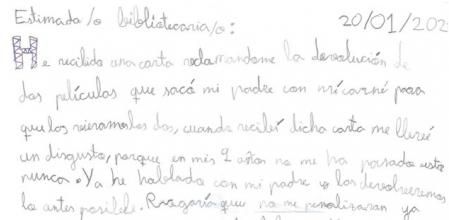 Estimada/o bibliotecaria/o: 20/01/202
He recibido una carta reclamandome la devolución de
dos películas que sacó mi padre con mi carné para
que los vieramos los dos, cuando recibí dicha carta me llevé
un disgusto, porque en mis 9 años no me ha pasado esto
nunca. Ya he hablado con mi padre y los devolveremos
lo antes posible. Rogaría que no me penalizaran ya